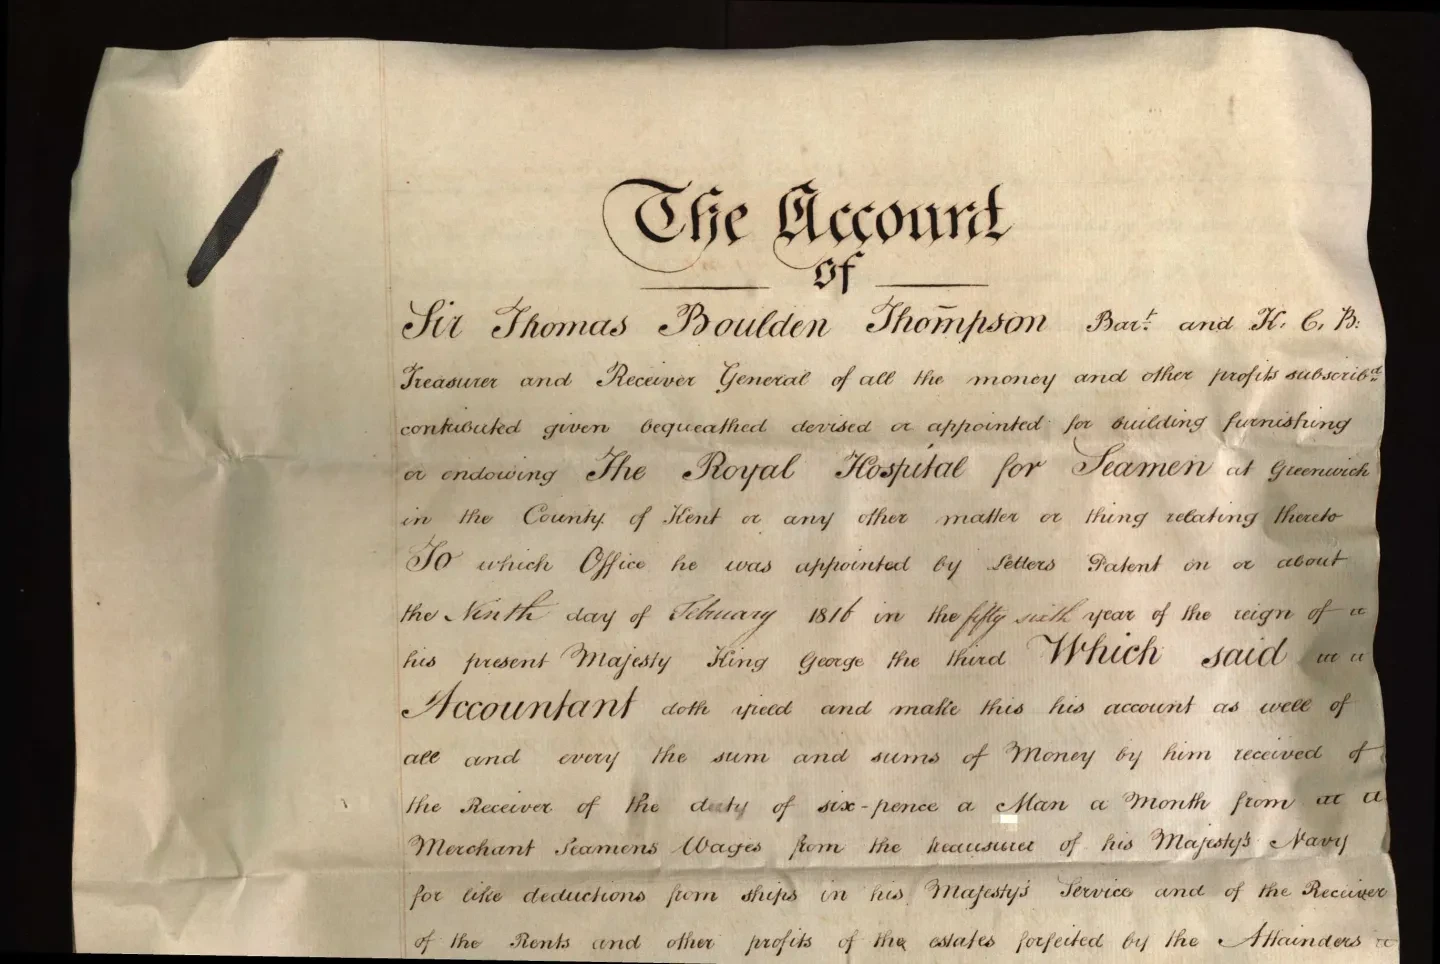 The Account
Of
Sir Thomas Boulden Thompson Bart. and K. C. B:
Treasurer and Receiver General of all the money and other profits subscribd
contributed given bequeathed devised or appointed for building furnishing
or endowing The Royal Hospital for Seamen at Greenwich
in the County of Kent or any other matter or thing relating thereto
To which Office he was appointed by Letters Patent on or about
the Ninth day of February 1816 in the fifty sixth year of the reign of
his present Majesty King George the third Which said
Accountant doth yield and make this his account as well of
all and every the sum and sums of Money by him received of
the Receiver of the duty of six-pence a Man a Month from
Merchant Seamens Wages from the treasurer of his Majesty's Navy
for like deductions from ships in his Majesty's Service and of the Receiver
of the Rents and other profits of the estates forfeited by the Attainders